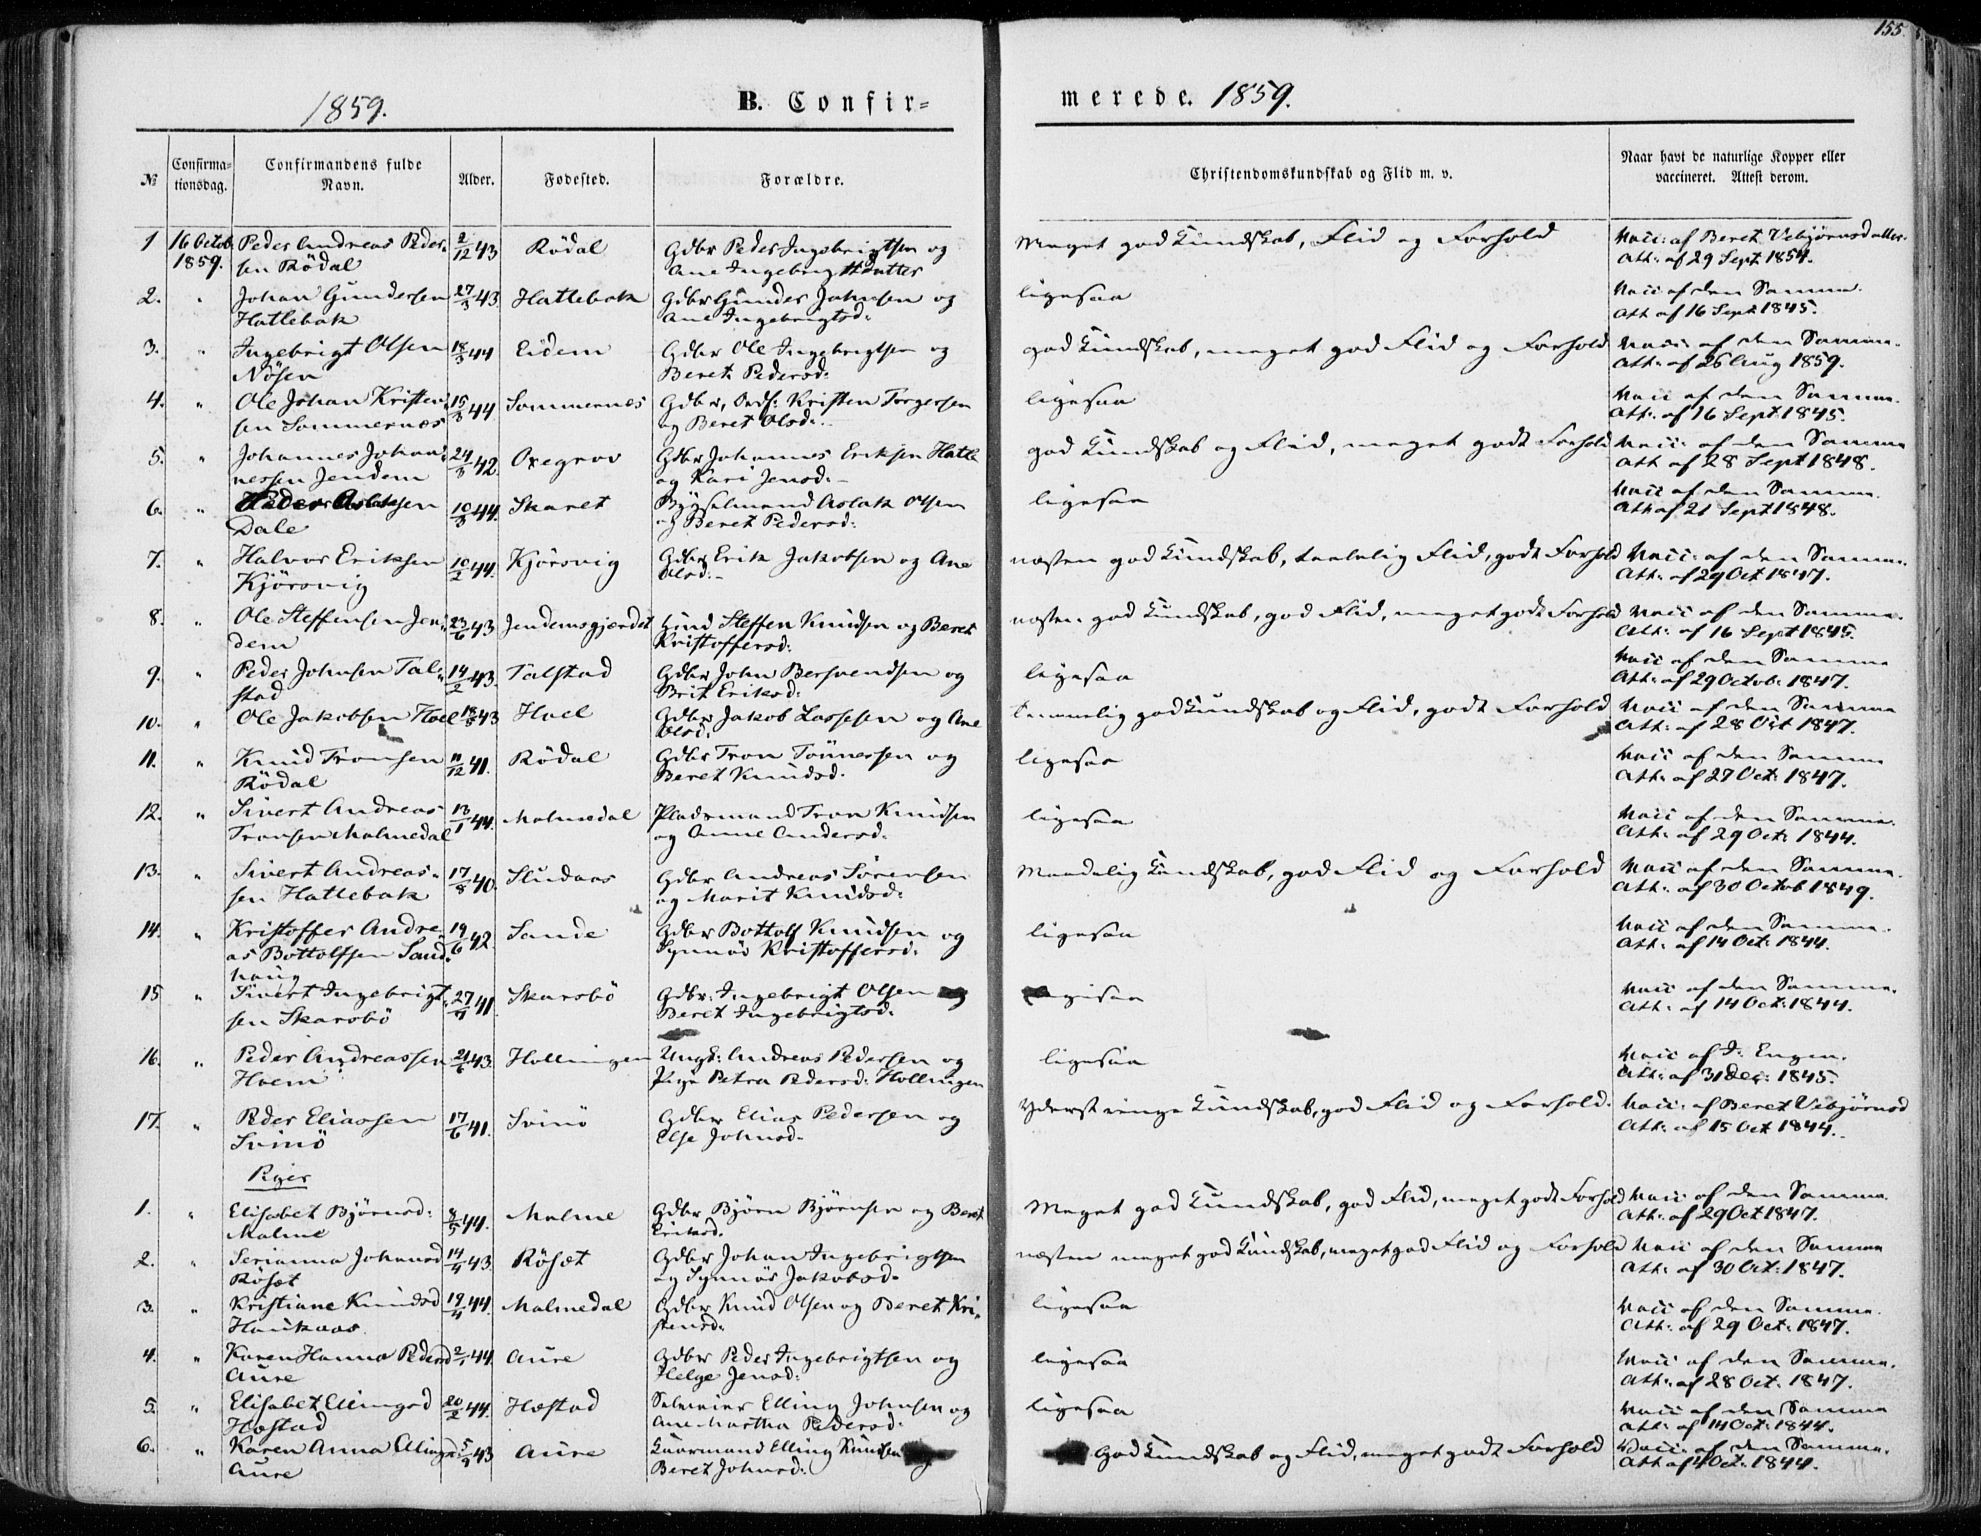 155.
1859. B. Confir=
merede. 1859.
№ Confirma=tionsdag. Confirmandens fulde Navn. Alder. Fødested. Forældre. Christendomskundskab og Flid m. v. Naar havt de naturlige Kopper eller vaccineret. Attest derom.
1 16 Octob. Peder Andreas Peder- 2/12 43 Rödal Gdbr Peder Ingebrigtsen og Meget god Kundskab, Flid og Forhold Vacc: af Beret Vebjørnsdatter.
1859. sen Rödal Ane Ingebrigtsdatter Att: af 29 Sept 1854.
2. " Johan Gundersen 27/3 43. Hatlebak Gdbr Gunder Johnsen og ligesaa Vacc af den Samme.
Hatlebak Ane Ingebrigtsd: Att af 16 Sept 1845.
3. " Ingebrigt Olsen 18/3 44 Eidem Gdbr Ole Ingebrigtsen og god Kundskab, meget god Flid og Forhold Vacc: af den Samme.
Nösen Beret Pedersd: Att: af 26 Aug 1859.
4. " Ole Johan Kristen- 15/3 44 Sommernæs Gdbr, Kristen Torgersen ligesaa Vacc af den Samme.
sen Sommernæs og Beret Olsd: Att: af 16 Sept. 1845.
5. " Johannes Johan- 24/3 42 Oxegrov Gdbr Johannes Eriksen Hatle god Kundskab og Flid, meget godt Forhold Vacc: af den Samme
nessen Jendem og Kari Jensd: Att af 28 Sept 1848.
6. " Peder Aslaksen 10/3 44. Skaret Bygselmand Aslak Olsen ligesaa Vacc af den Samme.
Dale og Beret Pedersd: Att af 21 Sept 1848.
7. " Halvor Eriksen 10/2 44. Kjörsvig Gdbr Erik Jakobsen og Ane næsten god Kundskab, taalelig Flid, godt Forhold Vacc: af den Samme.
Kjörsvig Olsd: Att: af 29 Oct 1847.
8. " Ole Steffensen Jen- 23/6 43 Jendemsgjerdet Steffen Knudsen og Beret næsten god Kundskab, god Flid, meget godt Forhold Vacc af den Samme.
dem Kristoffersd: Att: af 16 Sept 1845.
9. " Peder Johnsen Tal- 14/2 43. Talstad Gdbr John Bersvendsen og ligesaa Vacc af den Samme
stad Brit Eriksd: Att: af 29 Octob: 1847.
10. " Ole Jakobsen Hoel 18/8 43 Hoel Gdbr Jakob Lassesen og Ane temmelig god Kundskab og Flid, godt Forhold Vacc af den Samme
Olsd: Att: af 28 Oct 1847.
11. " Knud Tronsen 11/12 41. Rödal Gdbr Tron Tönnessen og ligesaa Vacc af den Samme
Rödal Beret Knudsd: Att: af 27 Oct: 1847.
12. " Sivert Andreas 13/1 44. Malmedal Pladsmand Tron Knudsen ligesaa Vacc af den Samme.
Tronsen Malmedal og Anne Andersd: Att: af 29 Oct: 1844.
13. " Sivert Andreas- 17/8 40. Studaas Gdbr Andreas Sörensen Maadelig Kundskab, god Flid og Forhold Vacc af den Samme.
sen Hatlebak og Marit Knudsd: Att: af 30 Octob 1849.
14. " Kristoffer Andre- 19/6 42 Sande Gdbr Bottolf Knudsen og ligesaa Vacc af den Samme.
as Bottolfsen Sand- Synnöv Kristoffersd: Att: af 14 Oct: 1844.
haug
15 " Sivert Ingebrigt- 27/4 41 Skarsbö Gdbr: Ingebrigt Olsen og ligesaa Vacc af den Samme.
sen Skarsbö Beret Ingebrigtsd: Att: af 14 Oct: 1844.
16. " Peder Andreassen 21/6 43. Hollingen Ungk: Andreas Pedersen og ligesaa Vacc af J. Engen.
Hoem Pige Petra Pedersd: Hollingen Att: af 31 Dec: 1845.
17. " Peder Eliassen 17/6 41. Svinö Gdbr Elias Pedersen og Yderst ringe Kundskab, god Flid og Forhold. Vacc: af Beret Vebjørnsd
Svinö Else Johnsd: Att: af 15 Oct 1844.
Piger
1. " Elisabet Bjørnsd: 8/5 44. Malme Gdbr Bjørn Bjørnsen og Beret Meget god Kundskab, god Flid, meget godt Forhold Vacc: af den Samme.
Malme Eriksd. Att: af 29 Oct 1847.
2. " Serianna Johansd 14/4 43 Rösæt Gdbr Johan Ingebrigtsen næsten meget god Kundskab, meget god Flid og Forhold Vacc af den Samme
Rösæt og Synnöv Jakobsd: Att: af 30 Oct: 1847.
3. " Kristiane Knudsd 19/4 44. Malmedal Gdbr Knud Olsen og Beret Kri- ligesaa Vacc af den Samme.
Haukaas stensd: Att: af 29 Oct: 1847.
4. " Karen Hanna Pedersd 2/1 44. Aure Gdbr Peder Ingebrigtsen og ligesaa Vacc af den Samme.
Aure Helge Jensd: Att: af 28 Oct: 1847.
5. " Elisabet Ellingsd 20/2 44. Hostad Elling Johnsen og ligesaa Vacc af den Samme
Hostad Ane Martha Pedersd: Att: af 14 Oct: 1844.
6. " Karen Anna Ellingsd 5/4 43 Aure Elling Knudsen og God Kundskab og Flid, meget godt Forhold Vacc: af den Samme.
Aure Beret Johnsd: Att af 4 Oct: 1844.